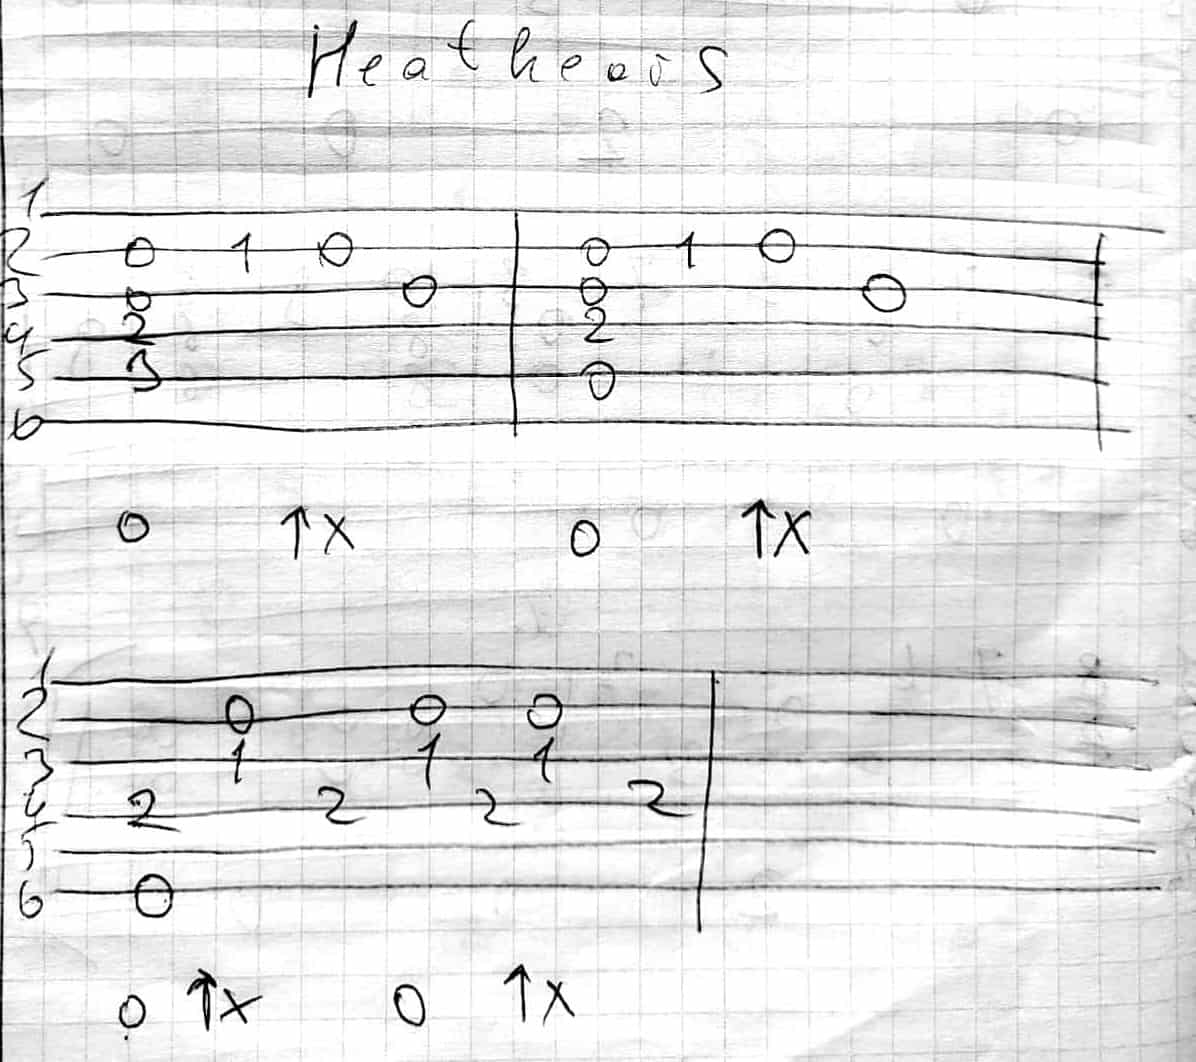 Heatheois
1
2 0 1 0 0 1 0
3 0 0 0 0
4 2 2
5 3 0
6
0 ↑X 0 ↑X
1
2 0 0 0
3 1 1 1
4 2 2 2 2
5
6 0
0 ↑X 0 ↑X